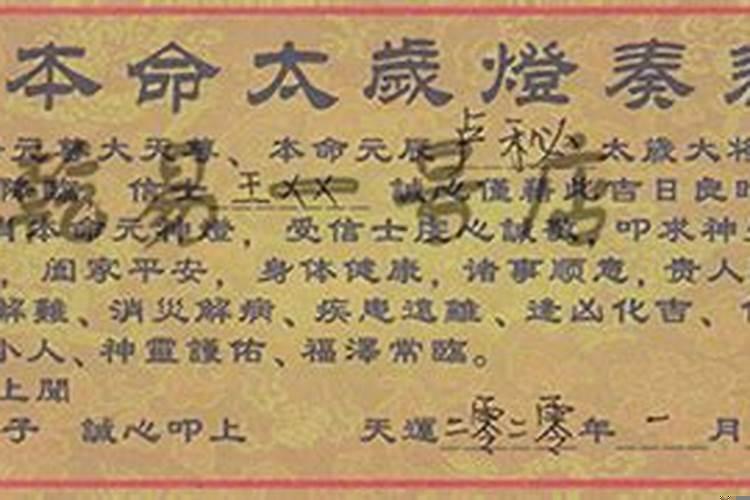 本命太歲燈奏
元尊大天尊、本命元辰卢秘太歲大將
降臨，信士王××誠心僅藉此吉日良時
本命元神燈，受信士虔心誠敬，叩求神
，闔家平安，身体健康，諸事顺意，贵人
解難、消災解病、疾患遠離、逢凶化吉、
小人、神靈護佑、福澤常臨。
上聞
子 誠心叩上 天運二零二零年一月